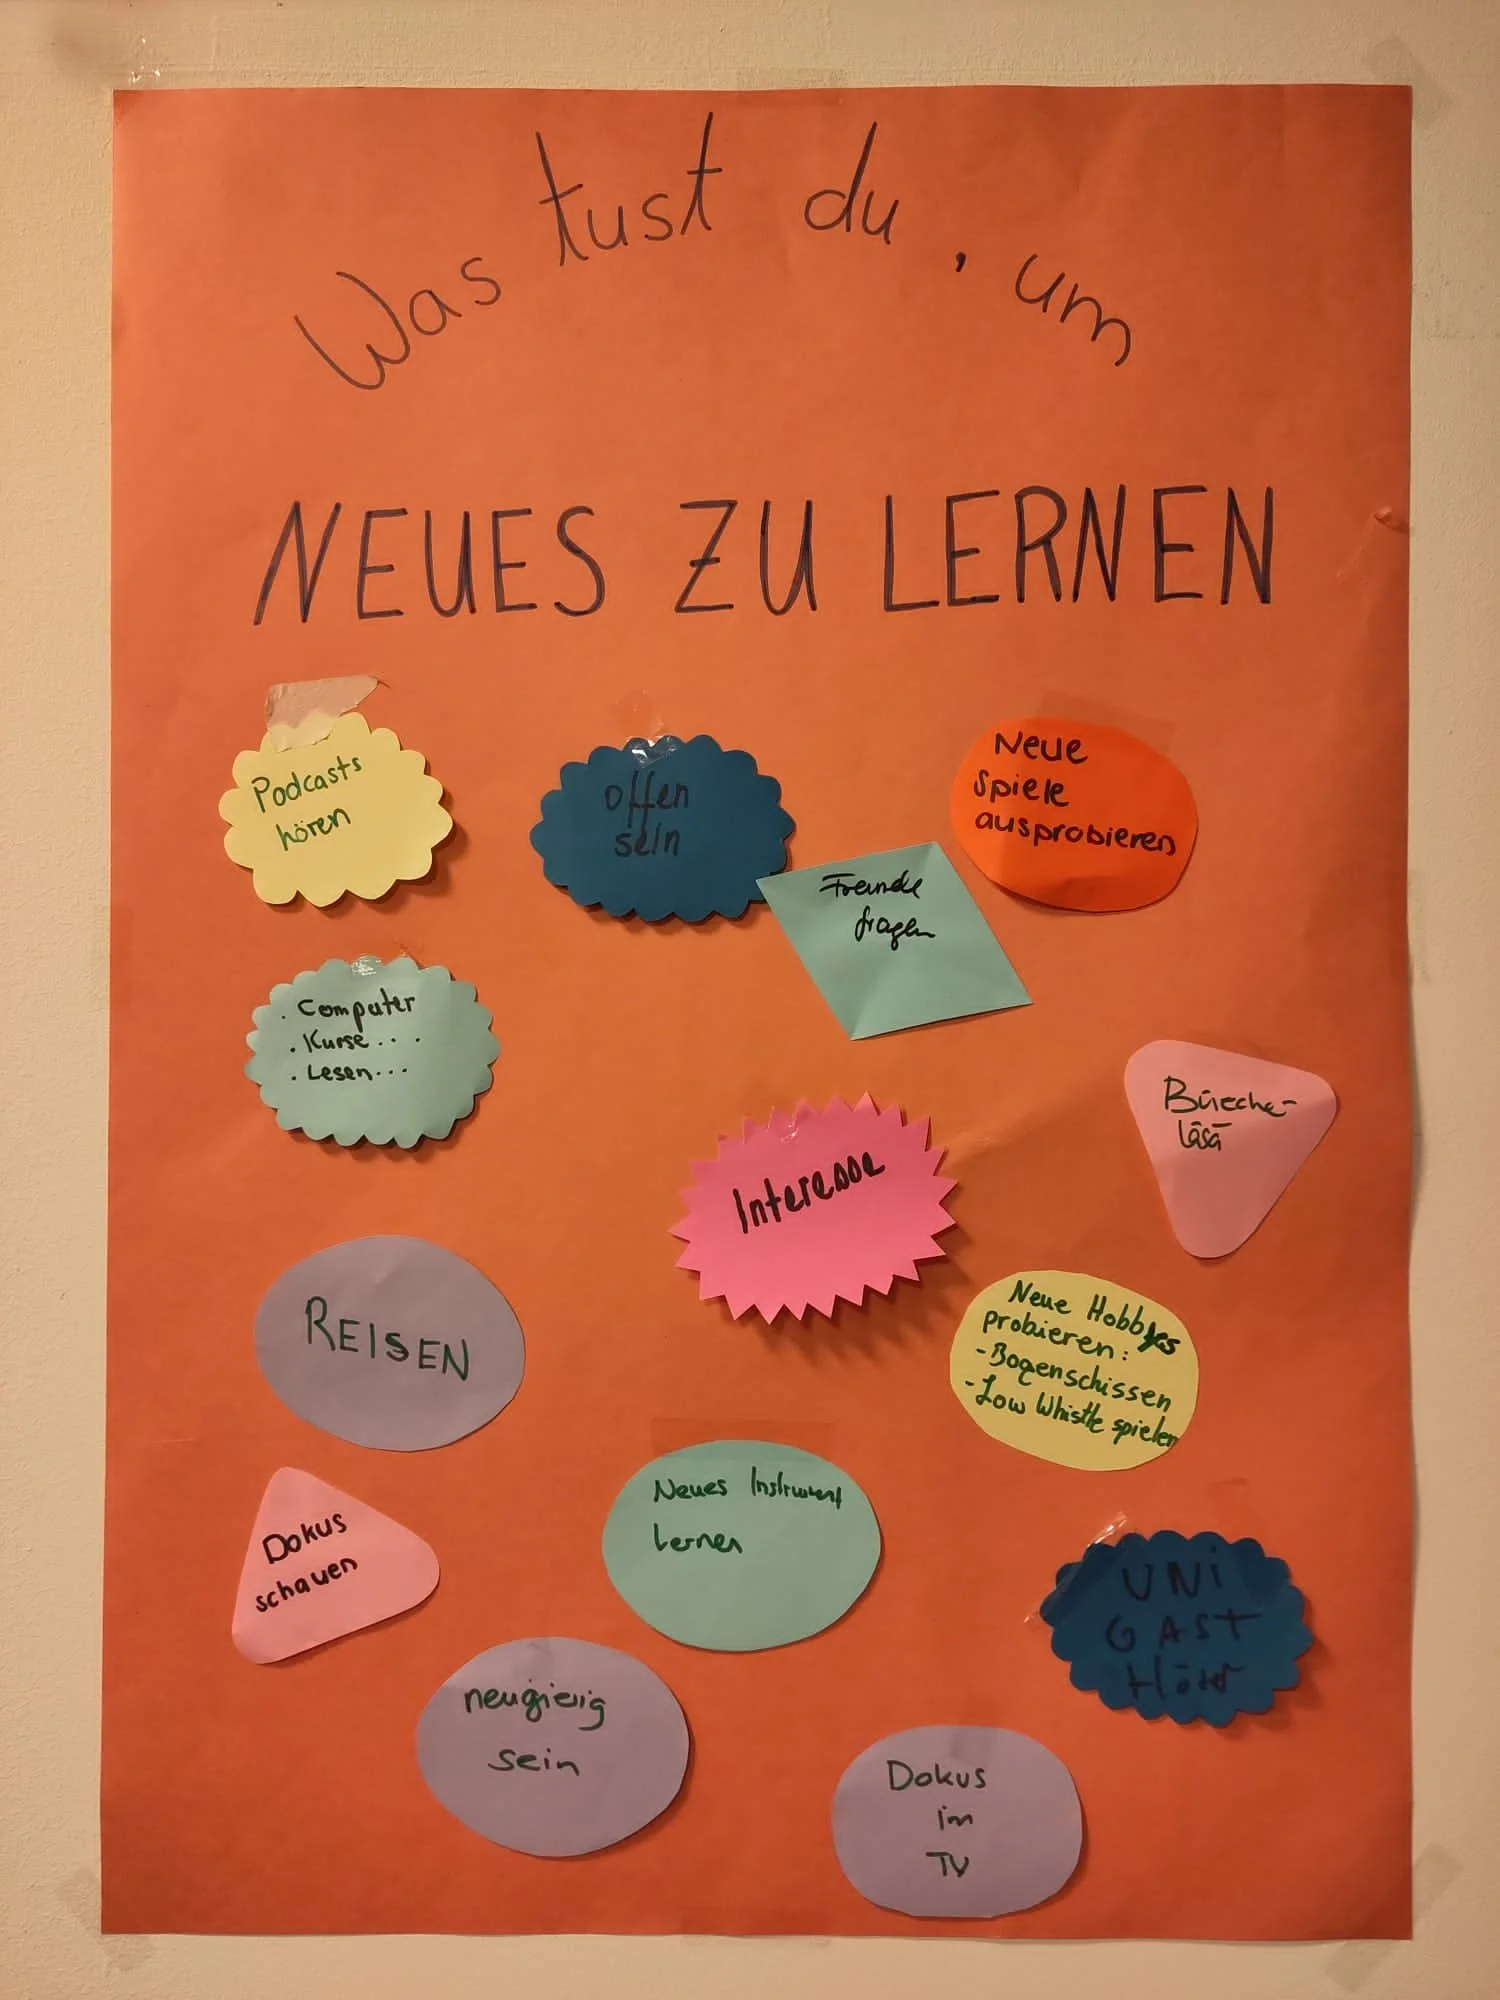 Was tust du, um
NEUES ZU LERNEN
Podcasts
hören
offen
sein
Neue
Spiele
ausprobieren
Freunde
fragen
. Computer
. Kurse...
. Lesen...
Büecha-
läsä
Interesse
REISEN
Neue Hobbys
probieren:
- Bogenschissen
- Low Whistle spielen
Dokus
schauen
Neues Instrument
lernen
UNi
GAST
Hörer
neugierig
sein
Dokus
im
TV